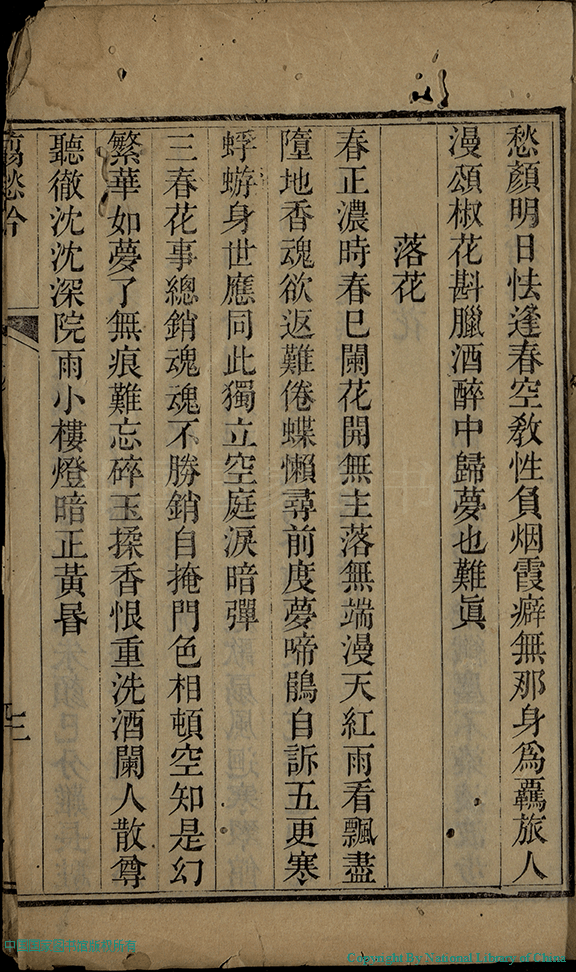 愁顏明日怯逢春空教性負烟霞癖無那身爲羈旅人
漫頌椒花斟臘酒醉中歸夢也難眞
落花
春正濃時春已闌花開無主落無端漫天紅雨看飄盡
墮地香魂欲返難倦蝶懶尋前度夢啼鵑自訴五更寒
蜉蝣身世應同此獨立空庭淚暗彈
三春花事總銷魂魂不勝銷自掩門色相頓空知是幻
繁華如夢了無痕難忘碎玉揉香恨重洗酒闌人散尊
聽徹沈沈深院雨小樓燈暗正黃昬
愁吟
三
Copyright By National Library of China